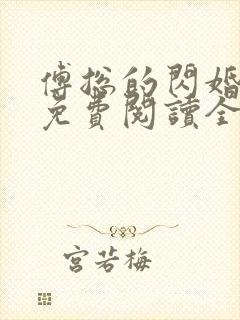 傅總的閃婚
免費閱讀全
宮若梅